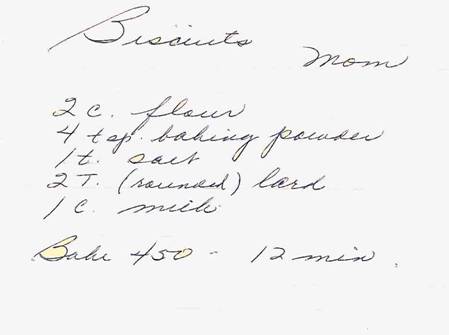 Biscuits
Mom
2 c. flour
4 tsp. baking powder
1 t. salt
2 T. (rounded) lard
1 c. milk
Bake 450 - 12 min.